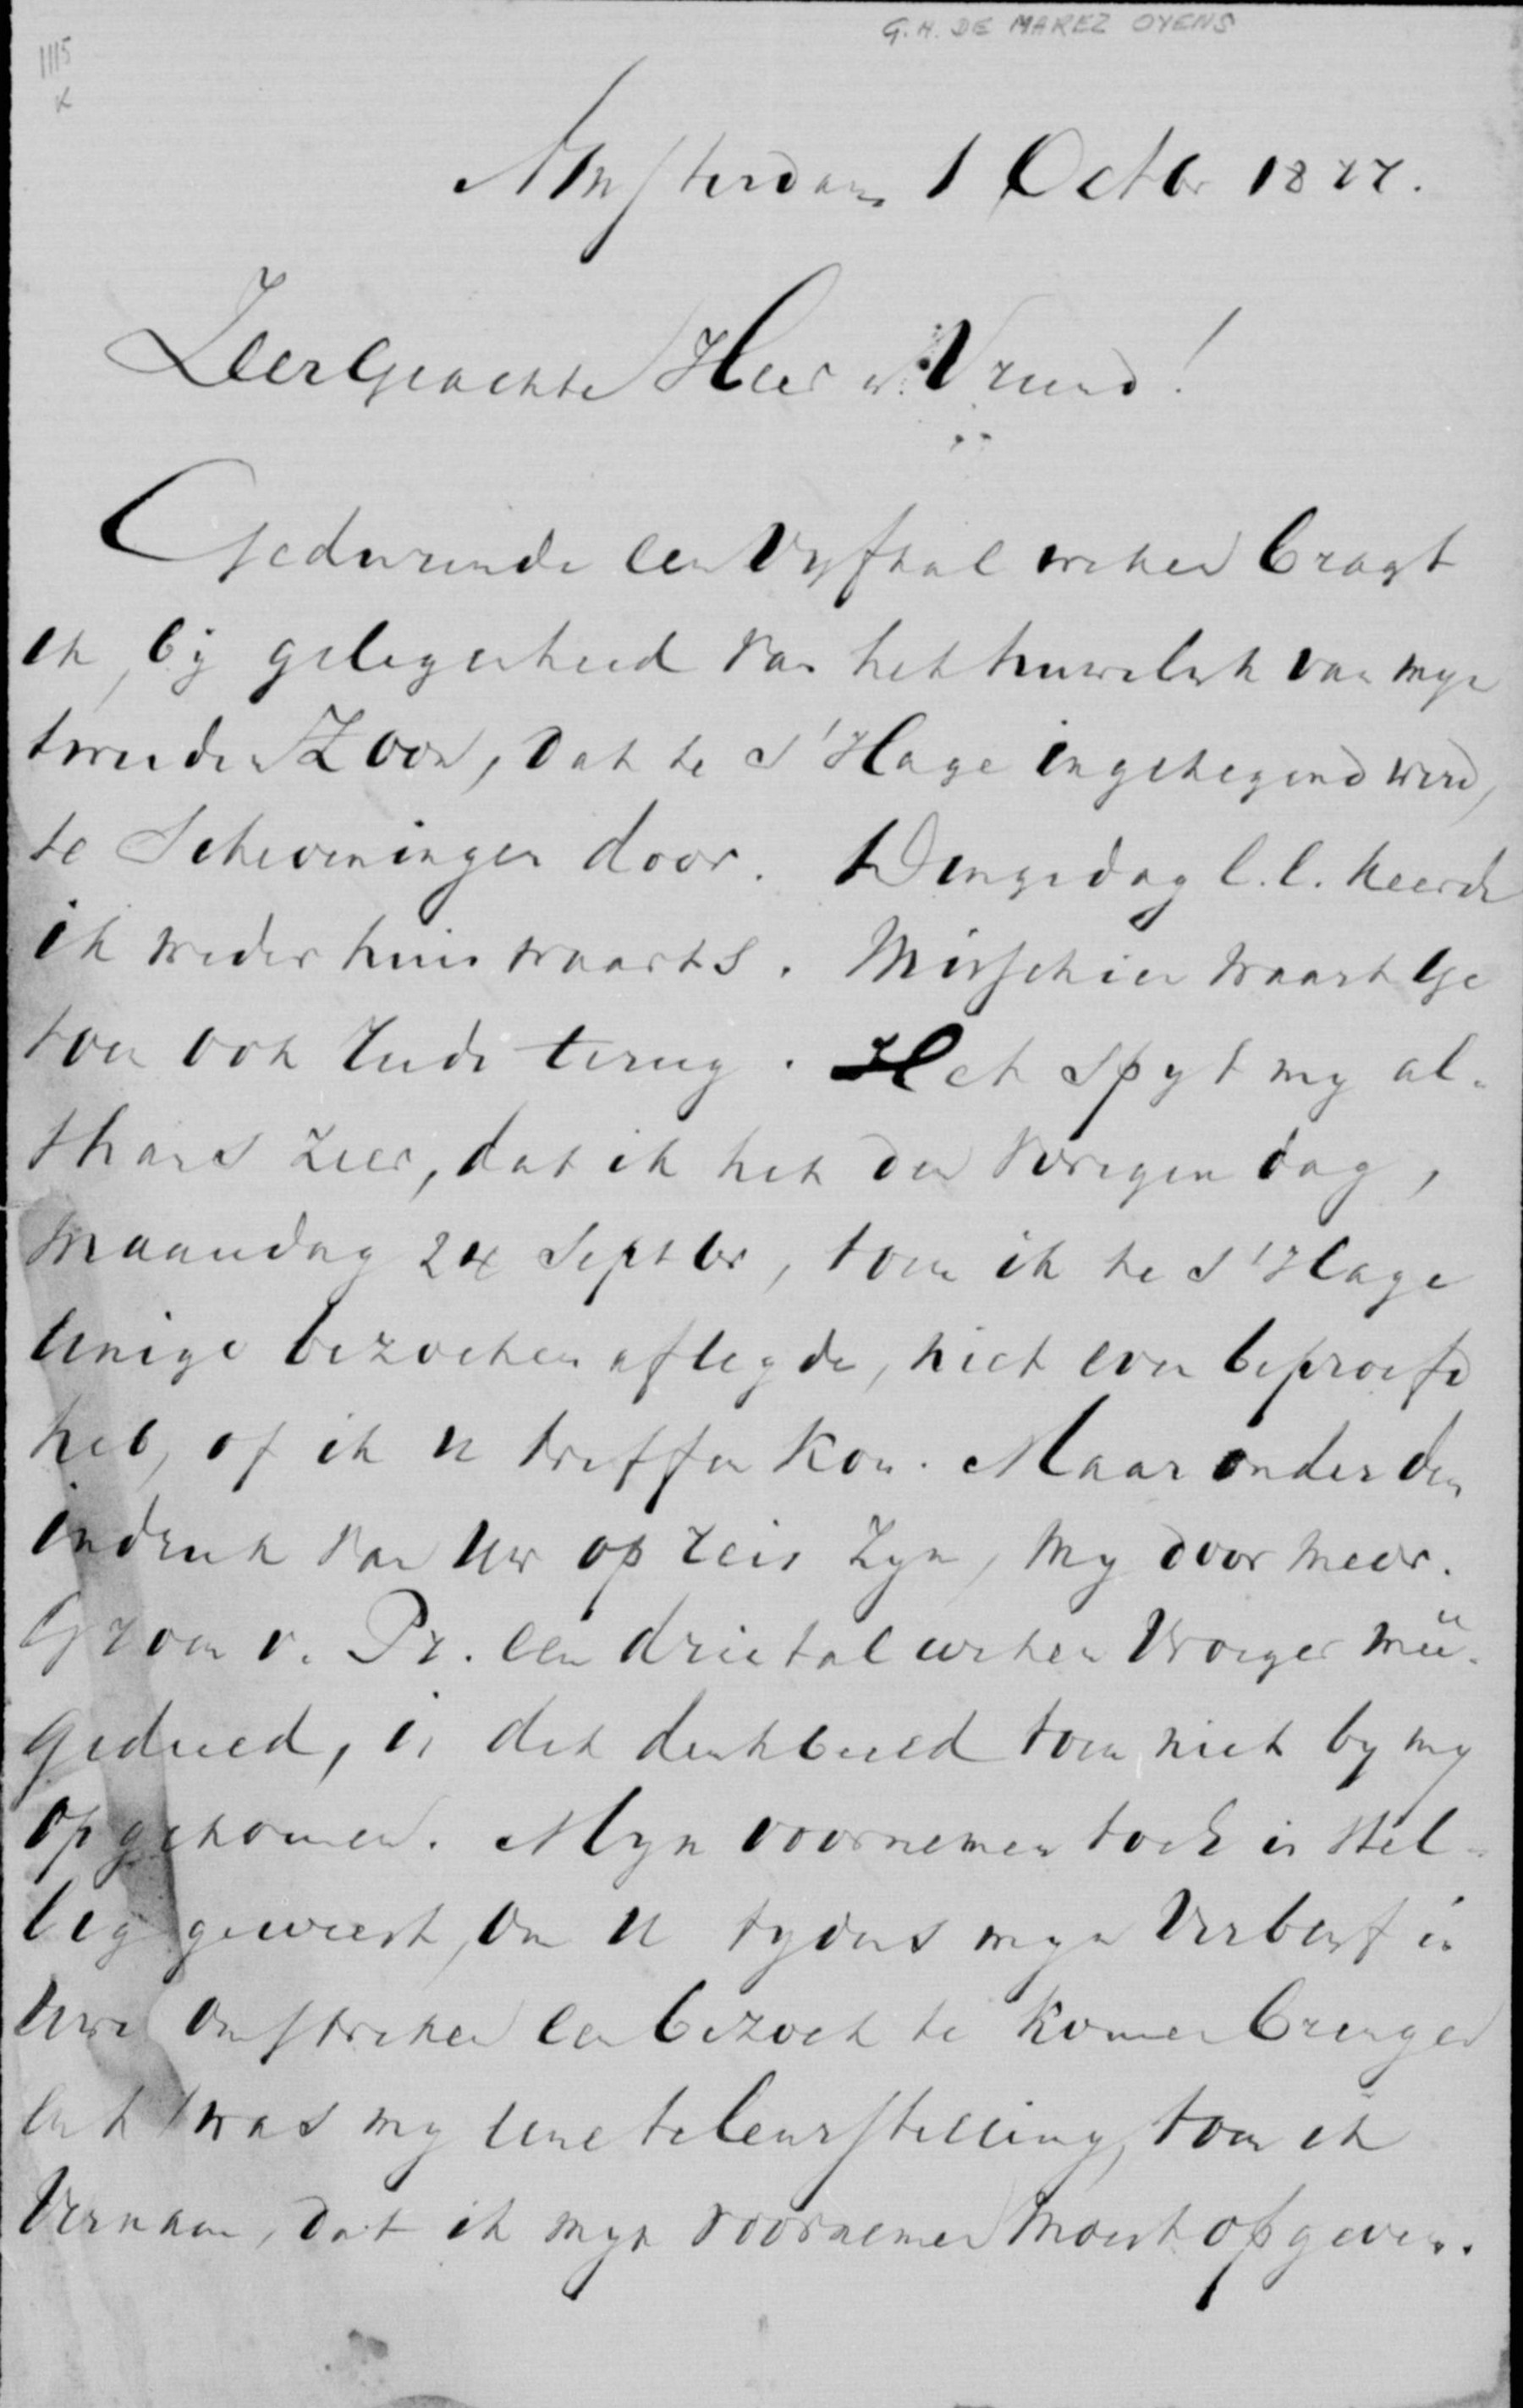 G.H. DE MAREZ OYENS
1115
K
Amsterdam 1 Octbr 1877.
Zeergeachte Heer en Vriend!
Gedurende een vyftal weken bragt
ik, bij gelegenheid van het huwelyk van myn
tweeden Zoon, dat te s'Hage ingezegend werd,
te Scheveningen door. Dingsdag l.l. keerde
ik weder huiswaarts. Misschien waart Ge
toen ook reeds terug. Het spyt my al-
thans zeer, dat ik het den vorigen dag,
Maandag 24 Septbr, toen ik te s'Hage
eenige bezoeken aflegde, niet even beproefd
heb, of ik U treffen kon. Maar onder den
indruk van Uw op reis zyn, my door mevr.
Groen v. Pr. een drietal weken vroeger mee-
gedeeld, is dit denkbeeld toen niet by my
opgekomen. Myn voornemen toch is stel-
lig geweest, om U tydens myn verblyf in
Uwe omstreken een bezoek te komen brengen
en 't was my eene teleurstelling, toen ik
vernam, dat ik myn voornemen moest opgeven.